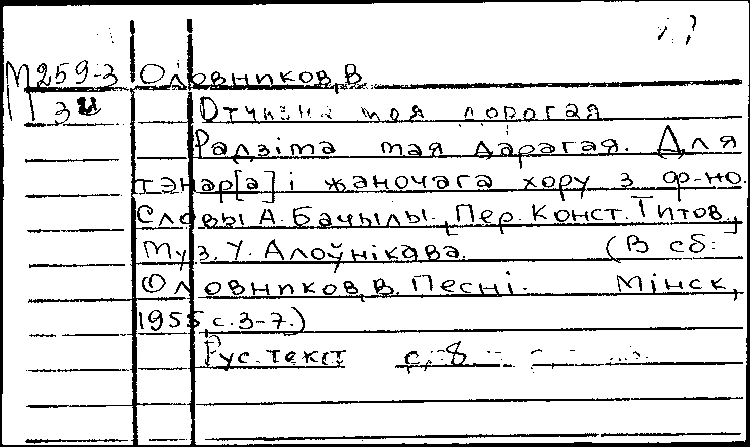 М259-3 Оловников, В
3и Отчизна моя дорогая
Радзіма мая дарагая. Для
тэнар[а] і жаночага хору з ф-но.
Словы А. Бачылы. [Пер. Конст. Титов],
Муз. У. Алоўнікава. (В сб:
Оловников, В. Песні. Мінск,
1955, с. 3-7.)
Рус. текст с. 8